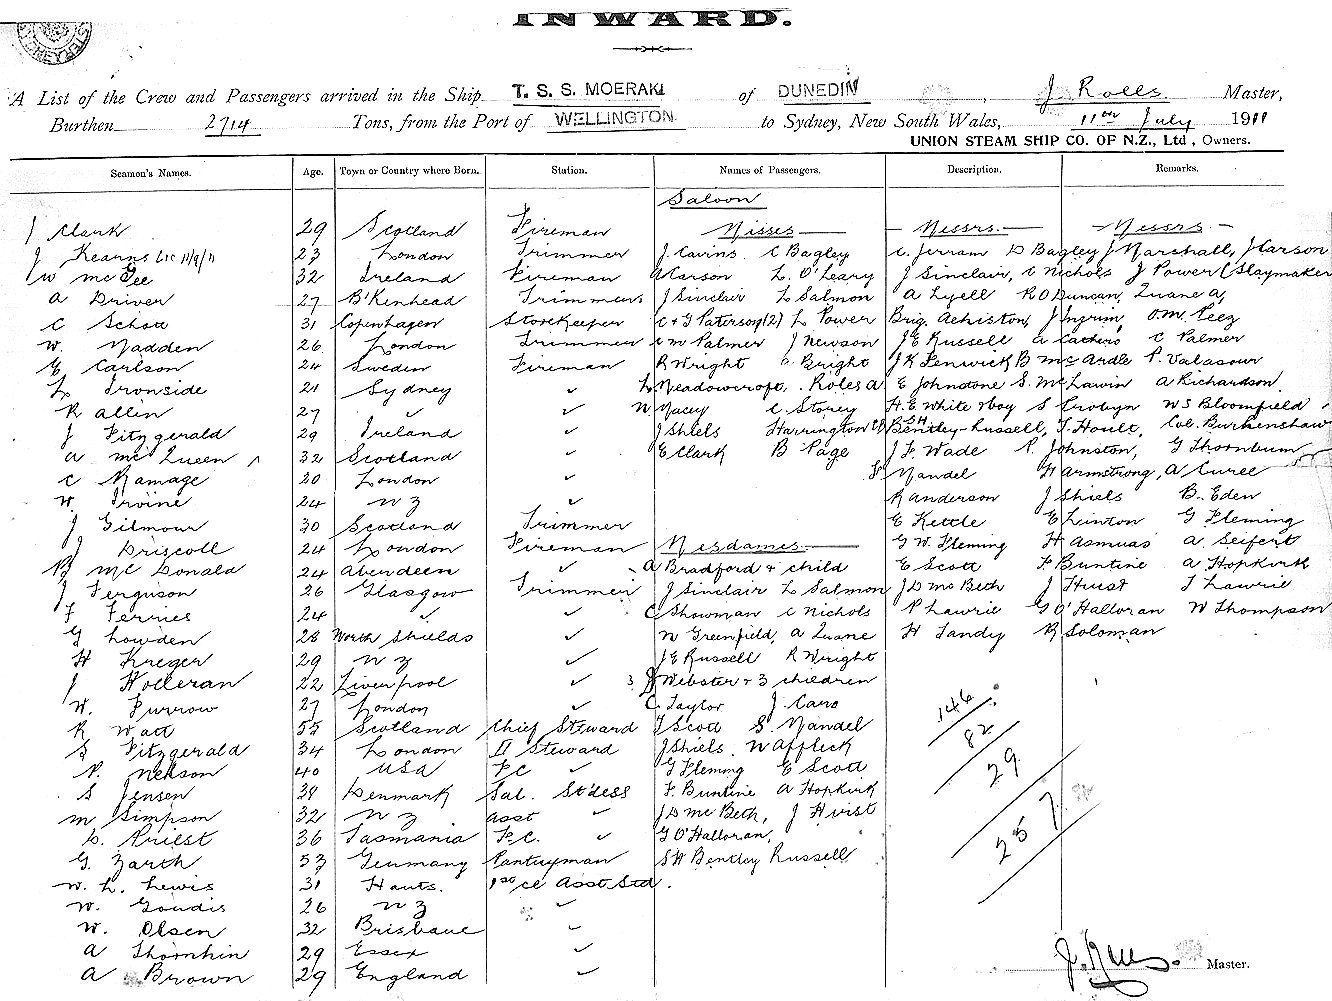 INWARD.
A List of the Crew and Passengers arrived in the Ship T. S. S. MOERAKI of DUNEDIN, J. Rolls Master,
Burthen 2714 Tons, from the Port of WELLINGTON to Sydney, New South Wales, 11th July 1911
UNION STEAM SHIP CO. OF N.Z., Ltd, Owners.
Seamen's Names. Age. Town or Country where Born. Station. Names of Passengers. Description. Remarks.
Saloon
J Clark 29 Scotland Fireman Misses Messrs. Messrs
J Kearns 11/9/11 23 London Trimmer J. Cavins C Bagley C. Jerram D Bagley J Marshall, J Carson
W McGee 32 Ireland Fireman A Carson L. O'Leary J Sinclair, C Nichols J Power C Slaymaker
A Driver 27 B'Kenhead Trimmer J Sinclair L Salmon A Lyell R O Duncan, Zuane A,
C Schou 31 Copenhagen Storekeeper C & G Paterson (2) L Power Brig. J Ingrim, O.M. Peez
W. Madden 26 London Trimmer C M Palmer J Newson J E Russell A C Palmer
E Carlson 24 Sweden Fireman R Wright A. Bright J K Fenwick B McArdle P. Valasour
L Ironside 21 Sydney " L. Meadowcroft, Roles A E Johnstone S. McLawin A Richardson
R Allin 27 " " N Macey C. Storey H. E White & boy S W S Bloomfield
J Fitzgerald 29 Ireland " J Shiels Harrington Bentley-Russell, T. Hoult, Col. Burkinshaw
A McQueen 32 Scotland " E Clark B Page J F. Wade R. Johnston, G Thornburn
C Ramage 20 London " Mandel H Armstrong, A Curle
W. Irvine 24 N Z " R Anderson J Shiels B. Eden
J Gilmour 30 Scotland Trimmer E Kettle E Linton G Fleming
J Driscoll 24 London Fireman Mesdames G W. Fleming H Asmuss A. Seifert
B McDonald 24 Aberdeen " A Bradford & child E Scott F Buntine A Hopkirk
J Ferguson 26 Glasgow Trimmer J Sinclair L Salmon J D McBeth J Hurst J Lawrie
F Ferries 24 " " C Showman C Nichols P Lawrie G O'Halloran W Thompson
G Lowden 28 North Shields " N Greenfield, A Zuane H Tandy R Soloman
H Kreger 29 N Z " J E Russell R Wright
J Holleran 22 Liverpool " 3 Webster & 3 children
W. Furrow 27 London " C. Taylor J. Caro 146
R Watt 55 Scotland Chief Steward J Scott S. Mandel 82
S Fitzgerald 34 London II Steward J Shiels N Affleck
N. Nelson 40 USA F C " G Fleming E Scott 29
S Jensen 39 Denmark Sal. St'dess F. Buntine A Hopkirk
M Simpson 32 N Z Asst " J D McBeth, J Hurst 257
D. Priest 36 Tasmania F.C. " G O'Halloran,
G. Zarth 53 Germany Pantryman S H Bentley Russell
W. L. Lewis 31 Hants. 1st cl Asst Std.
W. Goudis 26 N Z "
W. Olsen 32 Brisbane "
A Thornhin 29 Essex "
A Brown 29 England "
J. Rolls. Master.